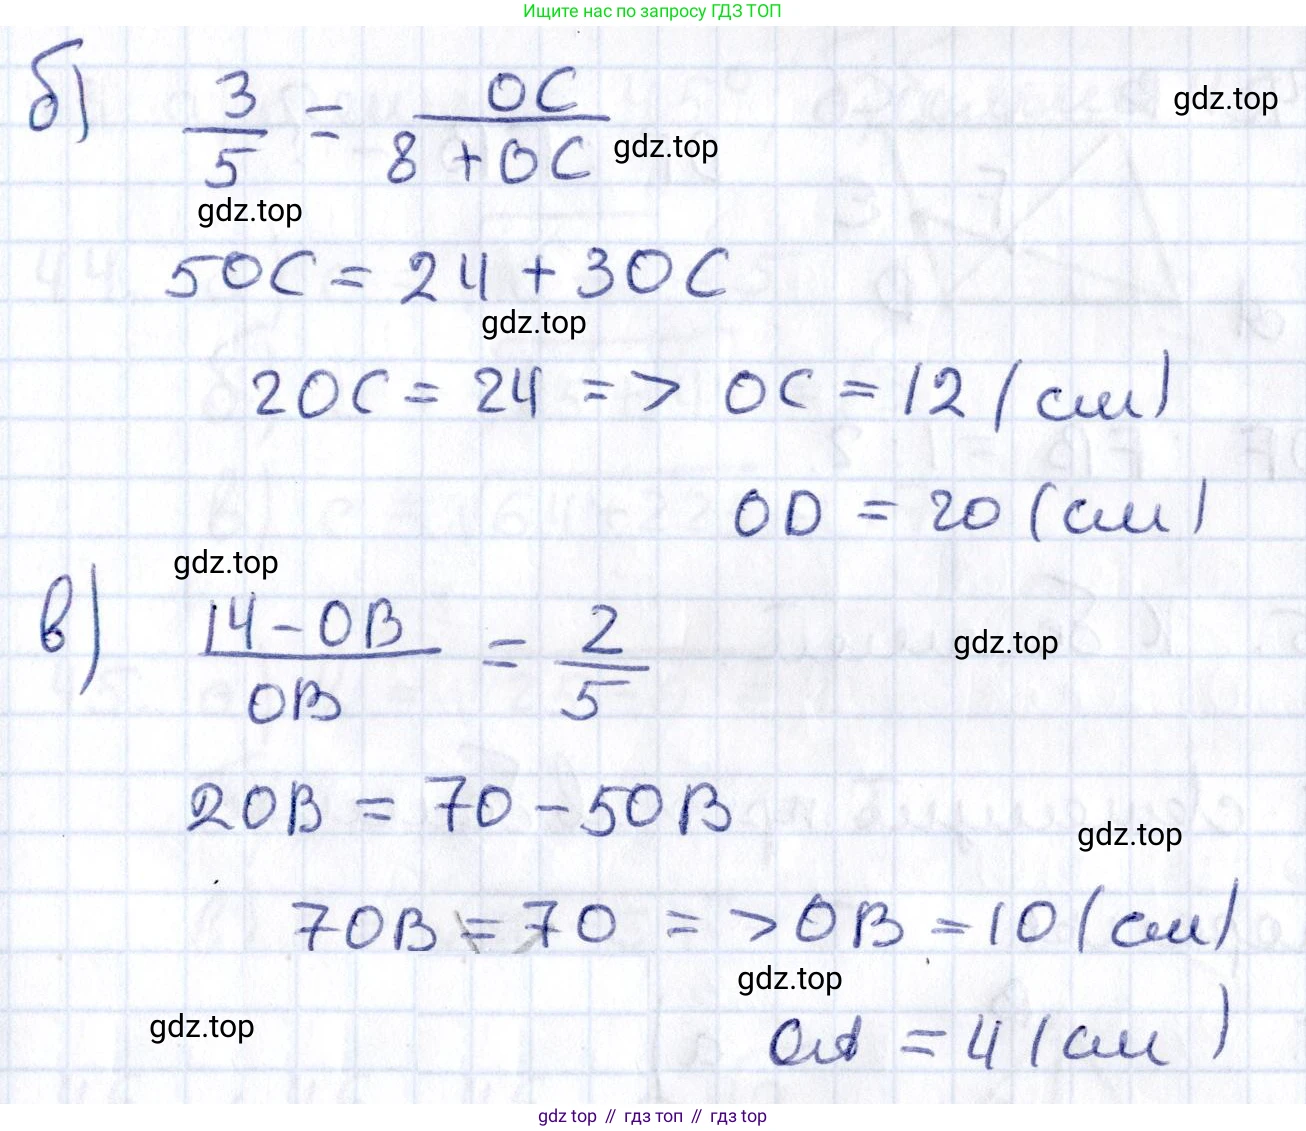 Ищите нас по запросу ГДЗ ТОП
б) 3/5 = OC/(8 + OC)
gdz.top
gdz.top
gdz.top
5OC = 24 + 3OC
gdz.top
2OC = 24 => OC = 12 (см)
OD = 20 (см)
gdz.top
в) (14 - OB)/OB = 2/5
gdz.top
2OB = 70 - 5OB
gdz.top
7OB = 70 => OB = 10 (см)
gdz.top
gdz.top
OA = 4 (см)
gdz top // гдз топ // гдз top